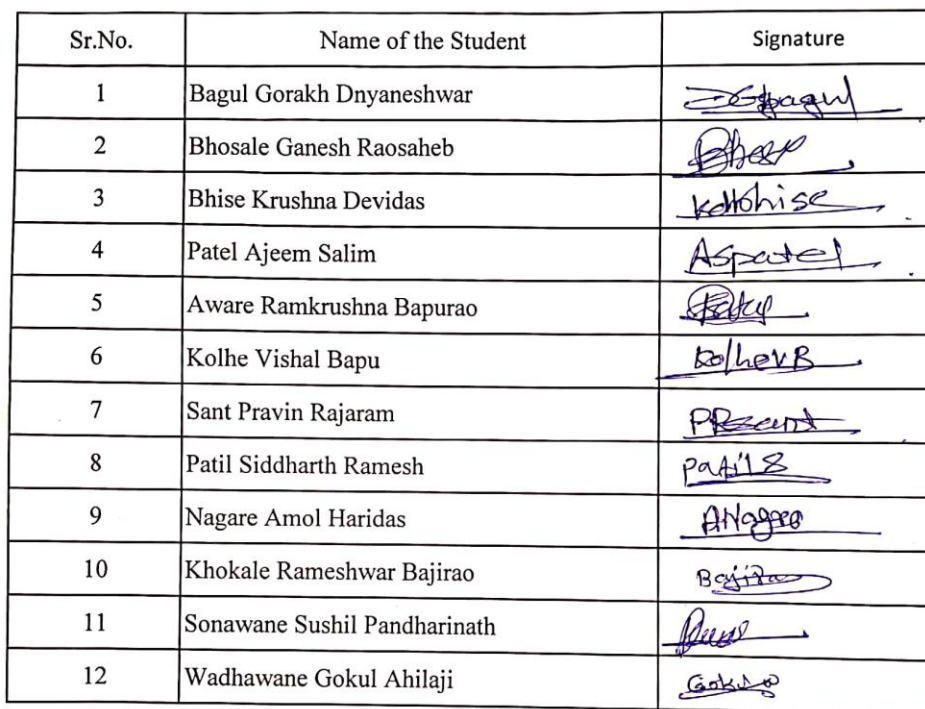 Sr.No. Name of the Student Signature
1 Bagul Gorakh Dnyaneshwar
2 Bhosale Ganesh Raosaheb
3 Bhise Krushna Devidas
4 Patel Ajeem Salim ASpatel
5 Aware Ramkrushna Bapurao
6 Kolhe Vishal Bapu KolheVB
7 Sant Pravin Rajaram PRSant
8 Patil Siddharth Ramesh
9 Nagare Amol Haridas
10 Khokale Rameshwar Bajirao
11 Sonawane Sushil Pandharinath
12 Wadhawane Gokul Ahilaji